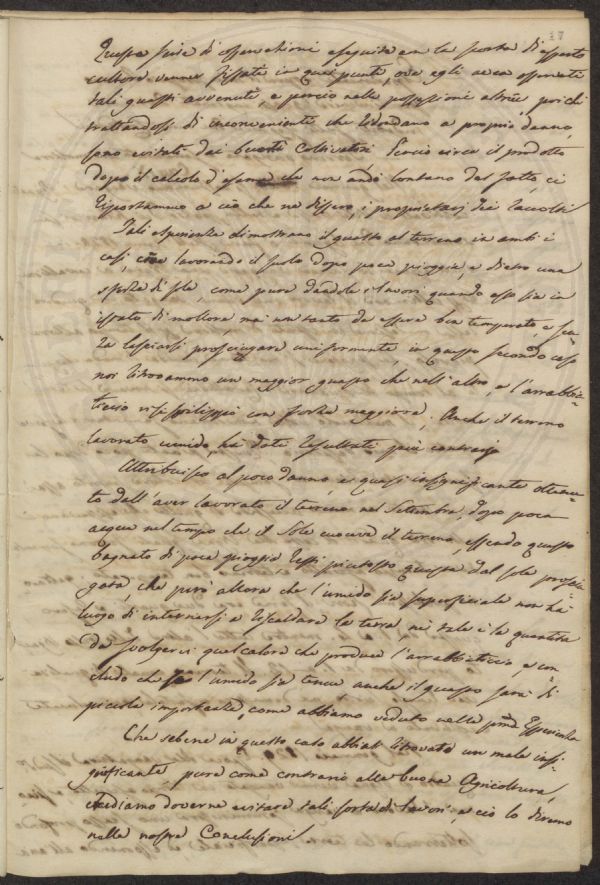 27
Questa serie di osservazioni eseguite con la scorta di esperto
cultore venne fissata in quei punti, ove egli avea osservato
tali guasti avvenuti, e perciò nelle possessioni altrui, poiché
trattandosi di inconvenienti che ridondano a proprio danno,
sono evitati dai buoni Coltivatori. Perciò circa il prodotto
dopo il calcolo d'esame che non andò lontano dal fatto, ci
riportammo a ciò che ne dissero, i proprietarj dei raccolti
Tali esperienze dimostrano il guasto al terreno in ambi i
casi, cioè lavorando il suolo dopo poca pioggia, e dietro una
sferza di sole, come pure dandole i lavori quando esso sia in
istato di mollora, ma un tanto da essere ben temperato, e sen-
za lasciarsi prosciugare uniformemente, in questo secondo caso
noi ritrovammo un maggior guasto che nell'altro, e l'arrabbia-
ticcio con forza maggiore. Anche il terreno
lavorato umido, ha dato resultati più contrarj
Attribuisco al poco danno, e quasi insignificante ottenu-
to dall'aver lavorato il terreno nel Settembre, dopo poca
acqua nel tempo che il Sole cuoceva il terreno, essendo questo
bagnato di poca pioggia, resti piuttosto questa dal sole prosciu-
gata, che però allora che l'umido sia superficiale non ha
luogo di internarsi e riscaldare la terra, nè tale è la quantità
da svolgervi quel calore che produce l'arrabbiaticcio, e con-
cludo che se l'umido sia tenue, anche il guasto sarà di
piccola importanza, come abbiamo veduto nella pma Esperienza
Che sebene in questo caso abbiati ritrovato un male insi-
gnificante, pure come contrario alla buona Agricoltura,
crediamo doverne evitare tali sorta di lavori, e ciò lo diremo
nelle nostre Conclusioni